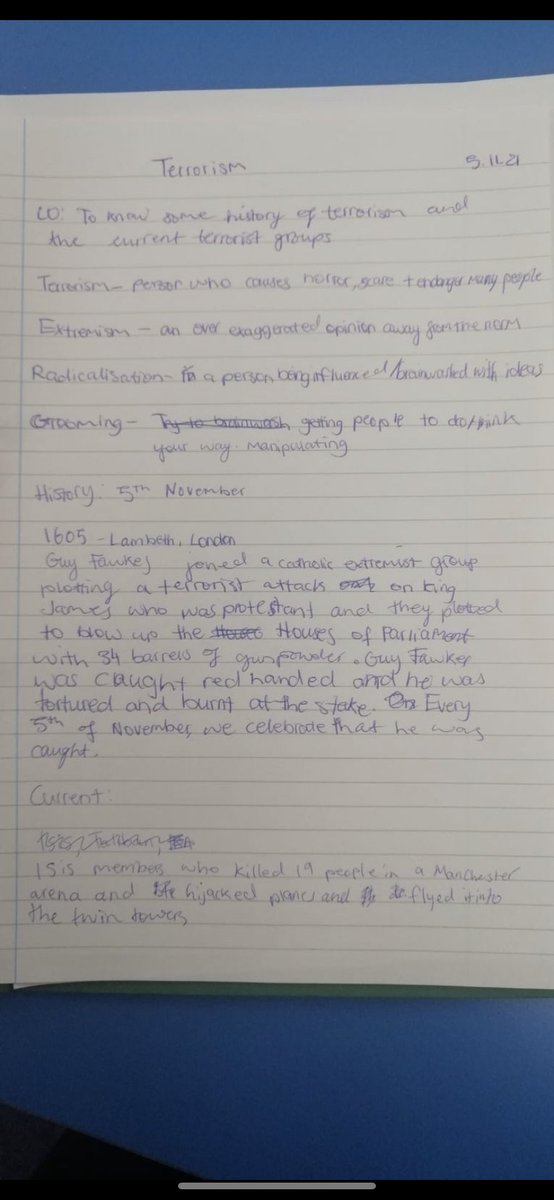 Terrorism 5.11.21
LO: To know some history of terrorism and
the current terrorist groups
Terrorism - person who causes horror, scare + endanger many people
Extremism - an over exaggerated opinion away from the norm
Radicalisation - a person being influenced/brainwashed with ideas
Grooming - Try to brainwash getting people to do/think
your way. Manipulating
History: 5th November
1605 - Lambeth, London
Guy Fawkes joined a catholic extremist group
plotting a terrorist attack on king
James who was protestant and they plotted
to blow up the Houses of Parliament
with 34 barrels of gunpowder. Guy Fawkes
was caught red handed and he was
tortured and burnt at the stake. Every
5th of November, we celebrate that he was
caught.
Current:
Isis members who killed 19 people in a Manchester
arena and hijacked planes and flyed it into
the twin towers